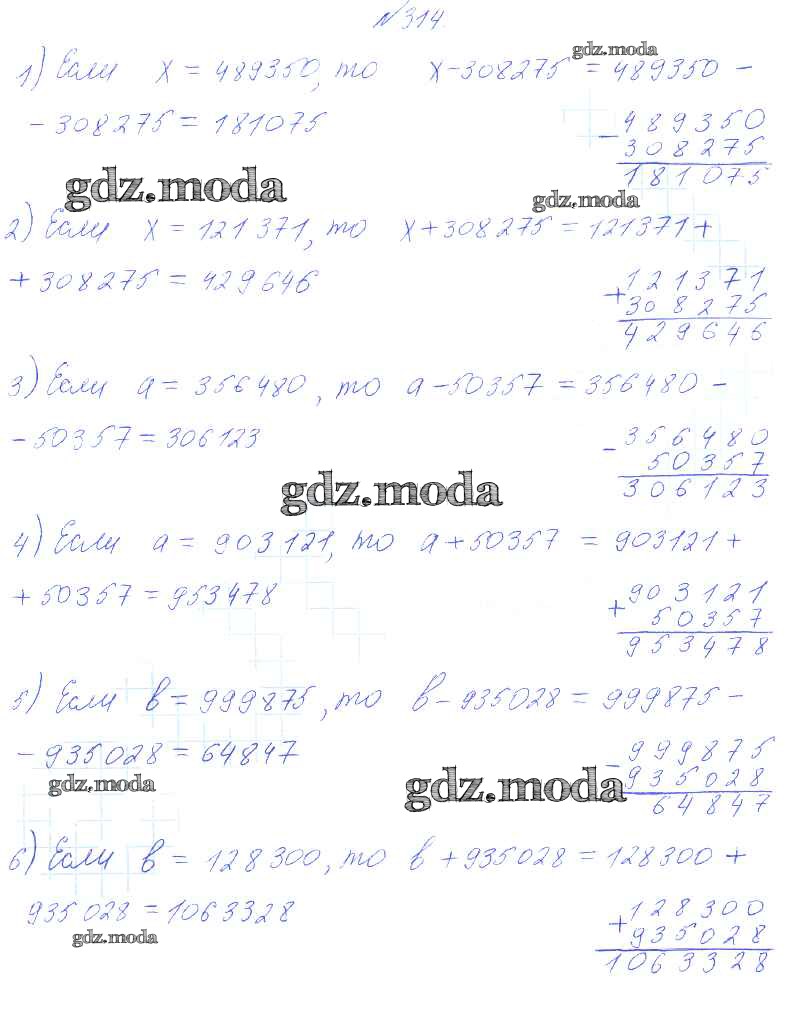 №314.
gdz.moda
1) Если x = 489350, то x-308275 = 489350 -
- 308275 = 181075
- 489350
308275
181075
gdz.moda
gdz.moda
2) Если x = 121371, то x+308275 = 121371+
+ 308275 = 429646
+ 121371
308275
429646
3) Если a = 356480, то a-50357 = 356480 -
- 50357 = 306123
- 356480
50357
306123
gdz.moda
4) Если a = 903121, то a+50357 = 903121 +
+ 50357 = 953478
+ 903121
50357
953478
5) Если в = 999875, то в - 935028 = 999875 -
- 935028 = 64847
- 999875
935028
64847
gdz.moda
gdz.moda
6) Если в = 128300, то в + 935028 = 128300 +
935028 = 1063328
+ 128300
935028
1063328
gdz.moda